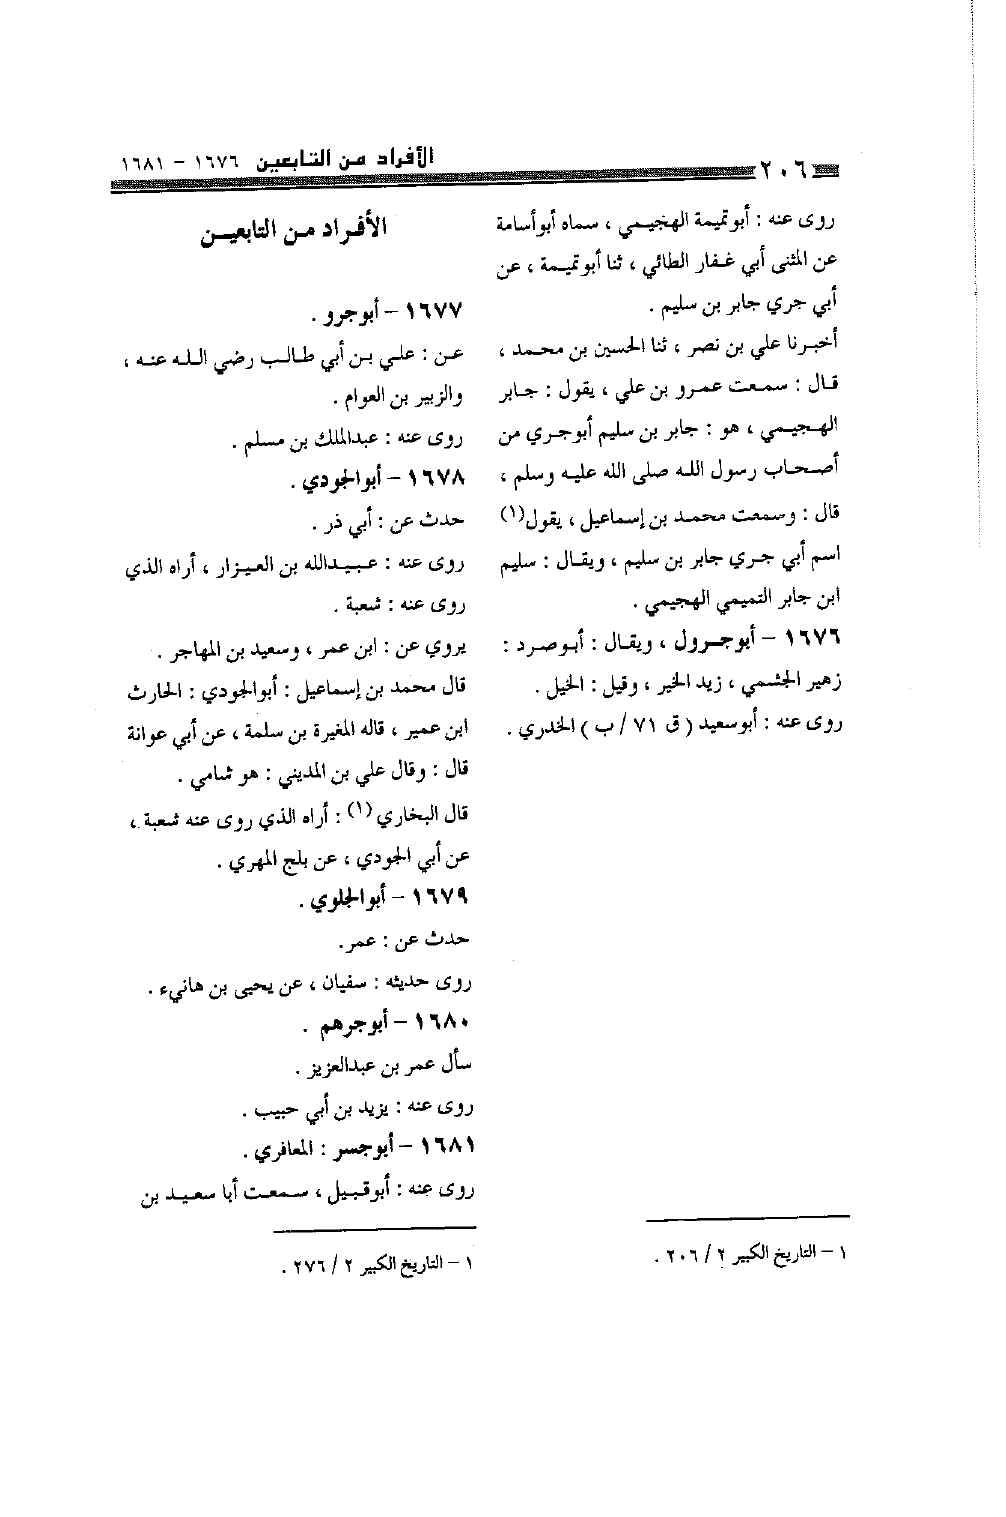 ٢٠٦
الأفراد من التابعين ١٦٧٦ - ١٦٨١
روى عنه : أبو تميمة الهجيمي ، سماه أبو أسامة
عن المثنى أبي غفار الطائي ، ثنا أبو تميمة ، عن
أبي جري جابر بن سليم .
أخبرنا علي بن نصر ، ثنا الحسين بن محمد ،
قال : سمعت عمرو بن علي ، يقول : جابر
الهجيمي ، هو : جابر بن سليم أبو جري من
أصحاب رسول الله صلى الله عليه وسلم ،
قال : وسمعت محمد بن إسماعيل ، يقول(١)
اسم أبي جري جابر بن سليم ، ويقال : سليم
ابن جابر التميمي الهجيمي .
١٦٧٦ - أبو جرول ، ويقال : أبو صرد :
زهير الجشمي ، زيد الخير ، وقيل : الخيل .
روى عنه : أبو سعيد ( ق ٧١ / ب ) الخدري .
١ - التاريخ الكبير ٢ / ٢٠٦ .
الأفراد من التابعين
١٦٧٧ - أبو جرو .
عن : علي بن أبي طالب رضي الله عنه ،
والزبير بن العوام .
روى عنه : عبدالملك بن مسلم .
١٦٧٨ - أبو الجودي .
حدث عن : أبي ذر .
روى عنه : عبيدالله بن العيزار ، أراه الذي
روى عنه : شعبة .
يروي عن : ابن عمر ، وسعيد بن المهاجر .
قال محمد بن إسماعيل : أبو الجودي : الحارث
ابن عمير ، قاله المغيرة بن سلمة ، عن أبي عوانة
قال : وقال علي بن المديني : هو شامي .
قال البخاري(١) : أراه الذي روى عنه شعبة ،
عن أبي الجودي ، عن بلج المهري .
١٦٧٩ - أبو الجلوي .
حدث عن : عمر.
روى حديثه : سفيان ، عن يحيى بن هانيء .
١٦٨٠ - أبو جرهم .
سأل عمر بن عبدالعزيز .
روى عنه : يزيد بن أبي حبيب .
١٦٨١ - أبو جسر : المعافري .
روى عنه : أبو قبيل ، سمعت أبا سعيد بن
١ - التاريخ الكبير ٢ / ٢٧٦ .